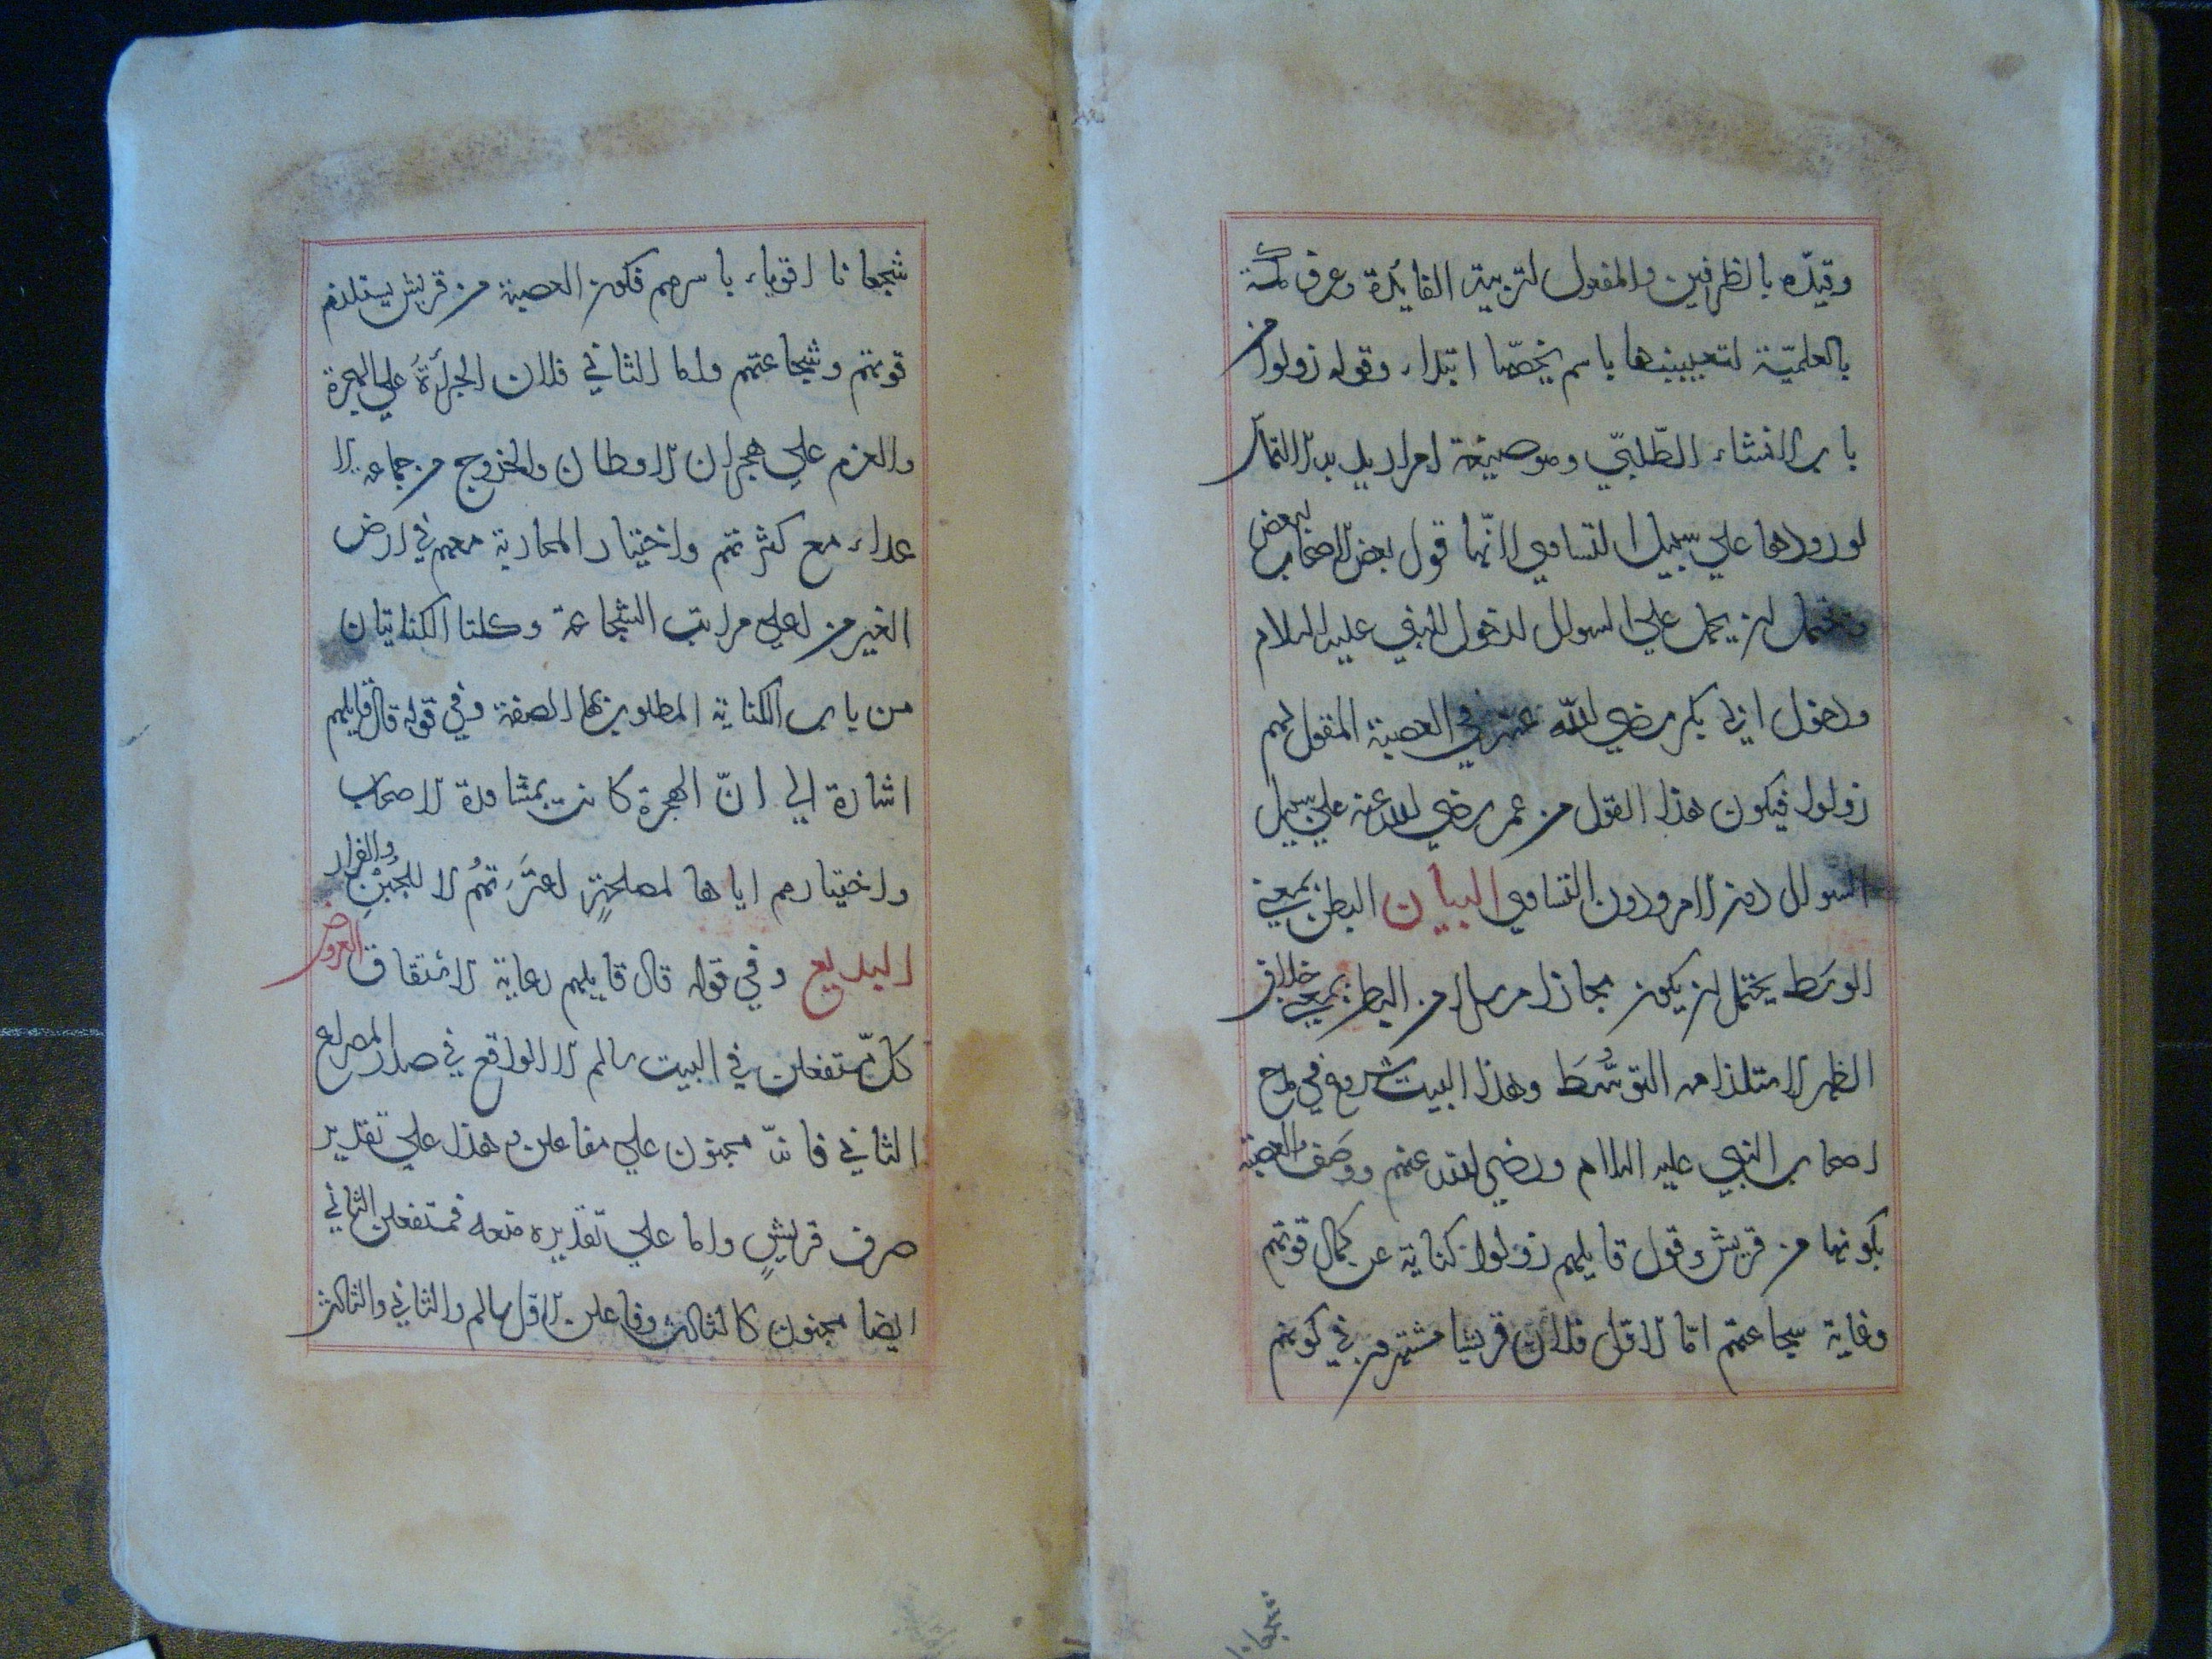 وقيدّه بالظرفين والمفعول لتربية الفائدة وعرف مكة
بالعلميّة لتعيينها باسم يخصّها ابتداء وقوله زولوا من
باب الانشاء الطّلبيّ وهو صيغة امر اريد بها التماس
لورودها علي سبيل التساوي لانّها قول بعض الاصحاب لبعض
ويحتمل ان يحمل علي السوال لدخول النبي عليه السلام
ودخول ابي بكر رضي الله عنه في العصبة المقول لهم
زولوا فيكون هذا القول من عمر رضي الله عنه علي سبيل
السوال دون الامر ودون التساوي البيان البطن بمعني
الوسط يحتمل ان يكون مجازا مرسلا من البطن بمعني خلاف
الظهر لاستلزامه التوسُّط وهذا البيت شروع في مدح
اصحاب النبي عليه السلام ورضي الله عنهم ووصف العصبة
بكونها من قريش وقول قايلهم زولوا كناية عن كمال قوتهم
وغاية شجاعتهم امّا الاول فلان قريشا مشتهرون في كونهم
شجعانا
شجعانا اقوياء باسرهم فكون العصبة من قريش يستلزم
قوتهم وشجاعتهم واما الثاني فلان الجرأة علي الهجرة
والعزم علي هجران الاوطان والخروج من جماعة الا
عداء مع كثرتهم واختيار المحاربة معهم في ارض
الغير من اعلي مراتب الشجاعة وكلتا الكنايتان
من باب الكناية المطلوب بها الصفة وفي قوله قال قايلهم
اشارة الي انّ الهجرة كانت بمشاورة الاصحاب
واختيارهم اياها لمصلحةٍ اعترتهمُ لا للجُبْنِ والفرار
البديع وفي قوله قال قايلهم رعاية الاشتقاق العروض
كلّ مستفعلن في البيت سالم الا الواقع في صدر المصراع
الثاني فانّه مخبون علي مفاعلن وهذا علي تقدير
صرف قريشٍ واما علي تقديره منعه فمستفعلن الثاني
ايضا مخبون كالثالث وفاعلن الاول سالم والثاني والثالث